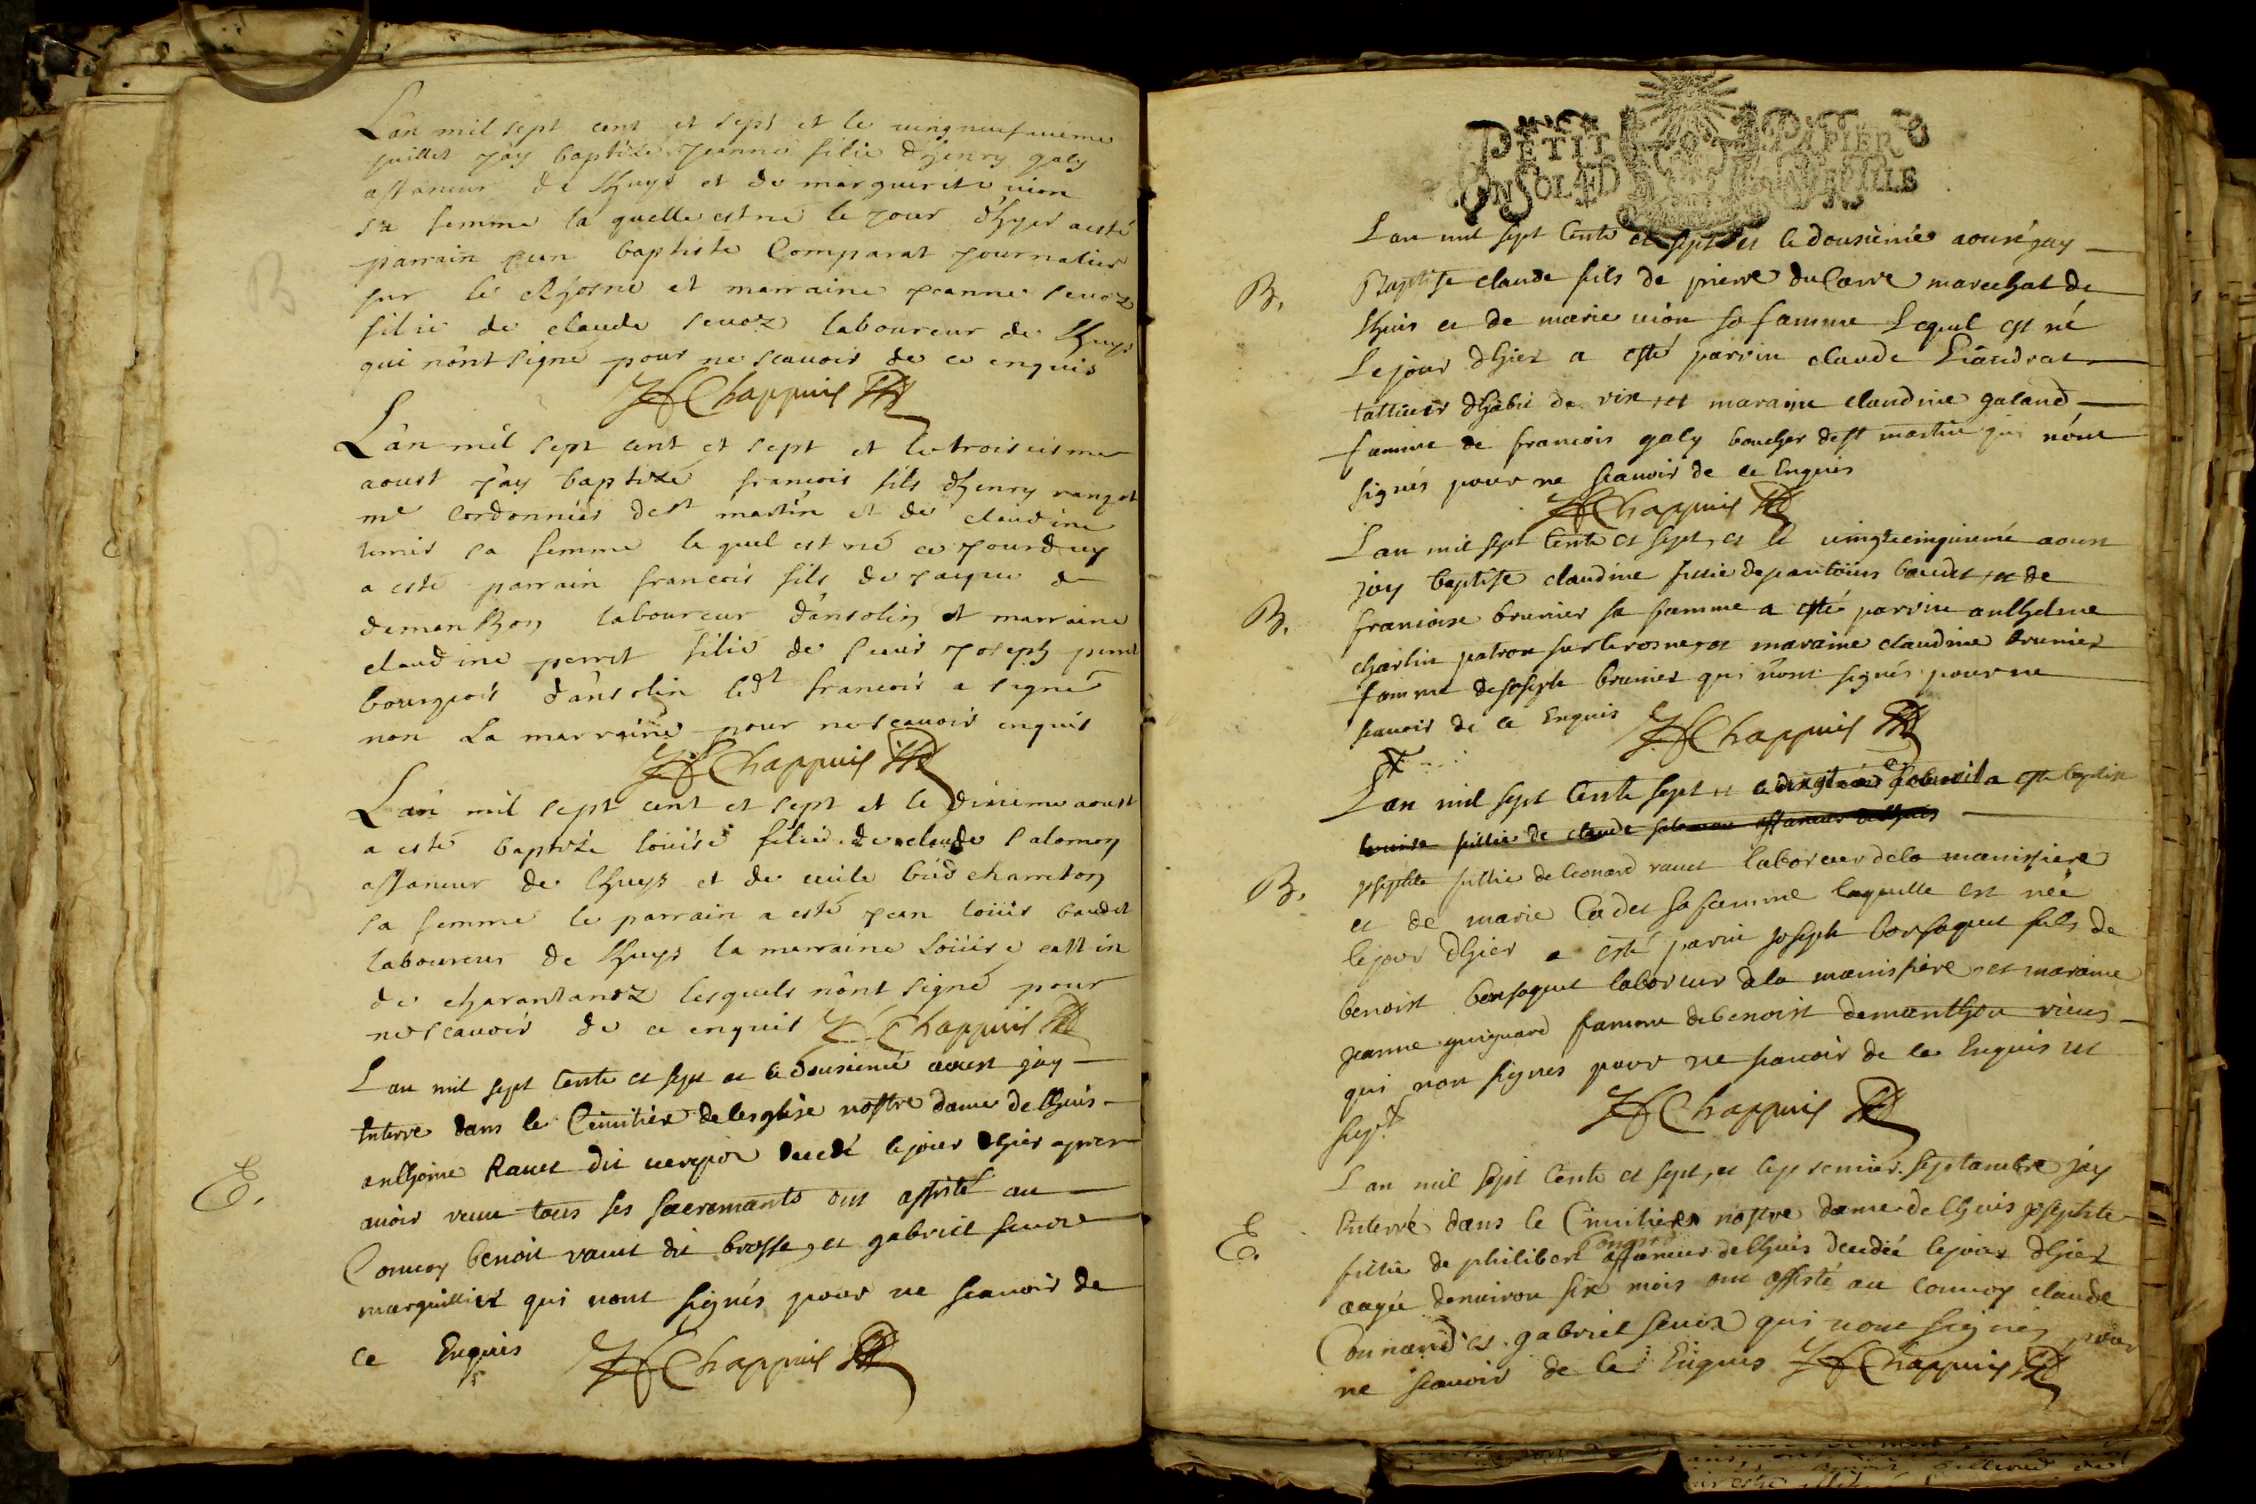 L'an mil sept cent et sept et le vingneufuieme
juillet j'ay baptizé jeanne fille d'henry galy
affaneur de Lhuys et de marguerite vion
sa femme la quelle est né le jour d'hyer a esté
parrain jean baptiste Comparat journalier
sur le Rhosne et marraine jeanne seuoz
fille de claude seuoz laboureur de Lhuys
qui n'ont signé pour ne scauoir de ce enquis
Chappuis
L'an mil sept cent et sept et le troisieisme
aoust j'ay baptizé francois fils d'henry rangot
me Cordonnier de st martin et de claudine
sa femme le quel est né ce jourduy
a esté parrain francois fils de jaque de
dementhon laboureur d'ansolin et marraine
claudine perret fille de sieur joseph perret
bourgeois d'ansolin ledt francois a signé
non La marraine pour ne scauoir enquis
Chappuis
L'an mil sept cent et sept et le dixieme aoust
a esté baptizé louise fille de claude salomon
affaneur de Lhuys et de
sa femme le parrain a esté jean louis baudet
laboureur de Lhuys la marraine Louise
de charantanoz lesquels n'ont signé pour
ne scauoir de ce enquis Chappuis
L an mil sept cents et sept et le dousieme aoust jay
Enterre dans le Cimitier de lesglise nostre dame de lhuis
anthoine Rauet dit decedé le jour dhier apres
auoir receu tous ses sacremants ont assisté au
Conuoy benoit rauet dit brosse, et gabriel seuoz
marguillier qui nont signés pour ne scauoir de
ce Enquis Chappuis
E.
PETIT PAPIER
UN SOL 4 D LA FEUILLE
L an mil sept cents et sept et le dousieme aoust jay
B. Baptise claude fils de pierre du Carre marechat de
Lhuis et de marie vion sa famme Lequel est né
Le jour dhier a esté parrin claude
tallieur dhabit de rix et maraine claudine galand
famme de francois galy boucher de st martin qui nont
signés pour ne scauoir de ce Enquis
Chappuis
L an mil sept cents et sept, et le vingtcinquieme aoust
jay baptise claudine fillie de baudet et de
B. francoise brunier sa famme a esté parrin anthelme
charlin patron sur le rosne, et maraine claudine brunier
famme de joseph brunier qui nont signés pour ne
scauoir de ce Enquis Chappuis
L an mil sept cents sept et a esté baptise
louise fillie de claude salomon affaneur de lhuis
B. josephte fillie de leonard rauet laboreur de la manissiere
et de marie Cadet sa famme laquelle est née
le jour dhier a esté parrin joseph bonsaquet fils de
benoist bonsaquet laboreur de la manissiere, et maraine
jeanne guignard famme de benoist demanthon vieux
qui non signes pour ne scauoir de ce Enquis
Chappuis
L an mil sept cents et sept, et le premier septambre jay
Enterré dans le Cimitier nostre dame de lhuis josephte
E. fillie de philibert Conand affaneur de lhuis decedée le jour dhier
aagée denuiron six mois ont assisté au conuoy claude
Connand et gabriel seuoz qui nont signés pour
ne scauoir de ce Enquis Chappuis